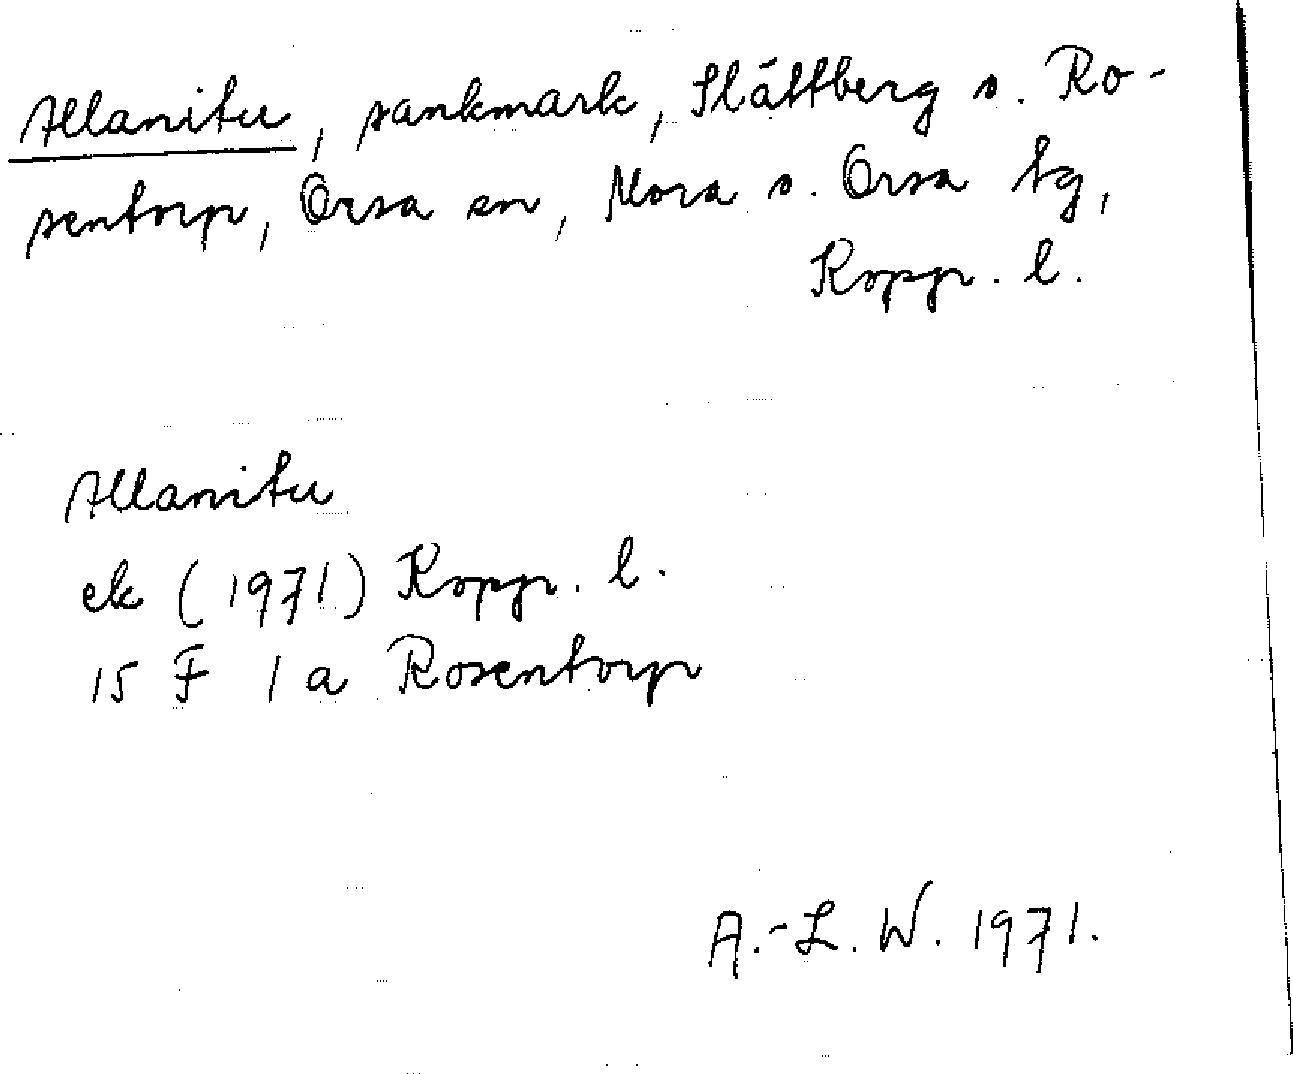 Allanitu, sankmark, Slättberg o. Ro-
sentorp, Orsa sn, Mora o. Orsa tg,
Kopp. l.
Allanitu
ek (1971) Kopp. l.
15 F 1 a Rosentorp
A.-L. W. 1971.